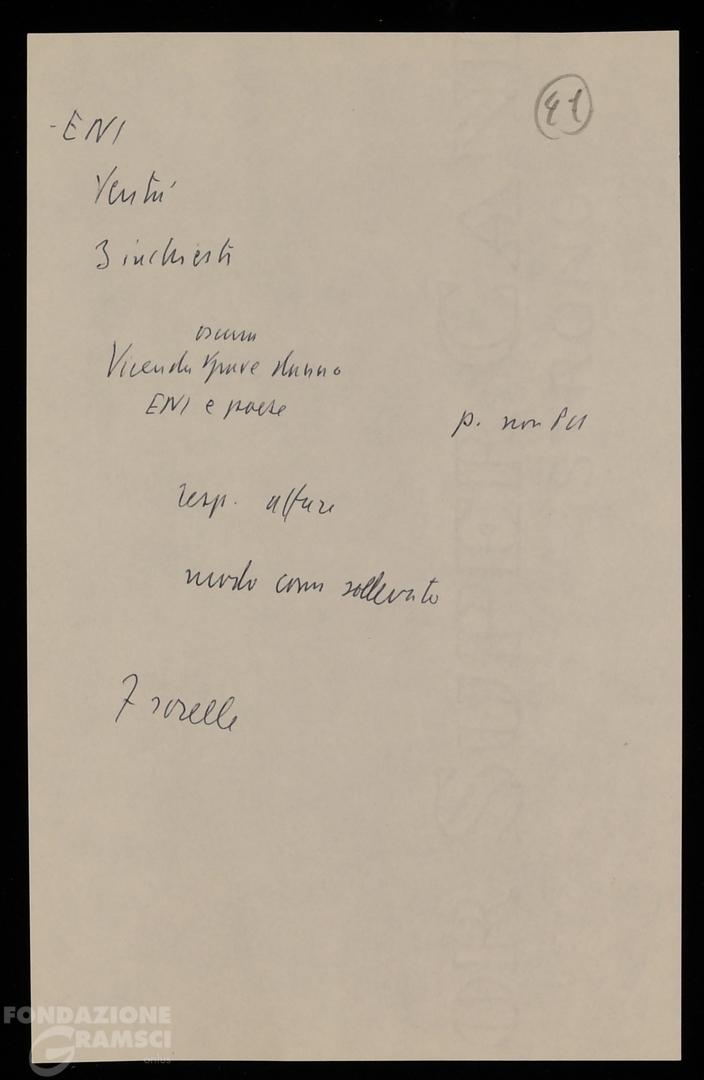 41
- ENI
Verità
3 inchieste
oscura
Vicenda grave danno
ENI e paese
p. non PCI
resp. affare
modo com sollevato
7 sorelle
FONDAZIONE
GRAMSCI
onlus